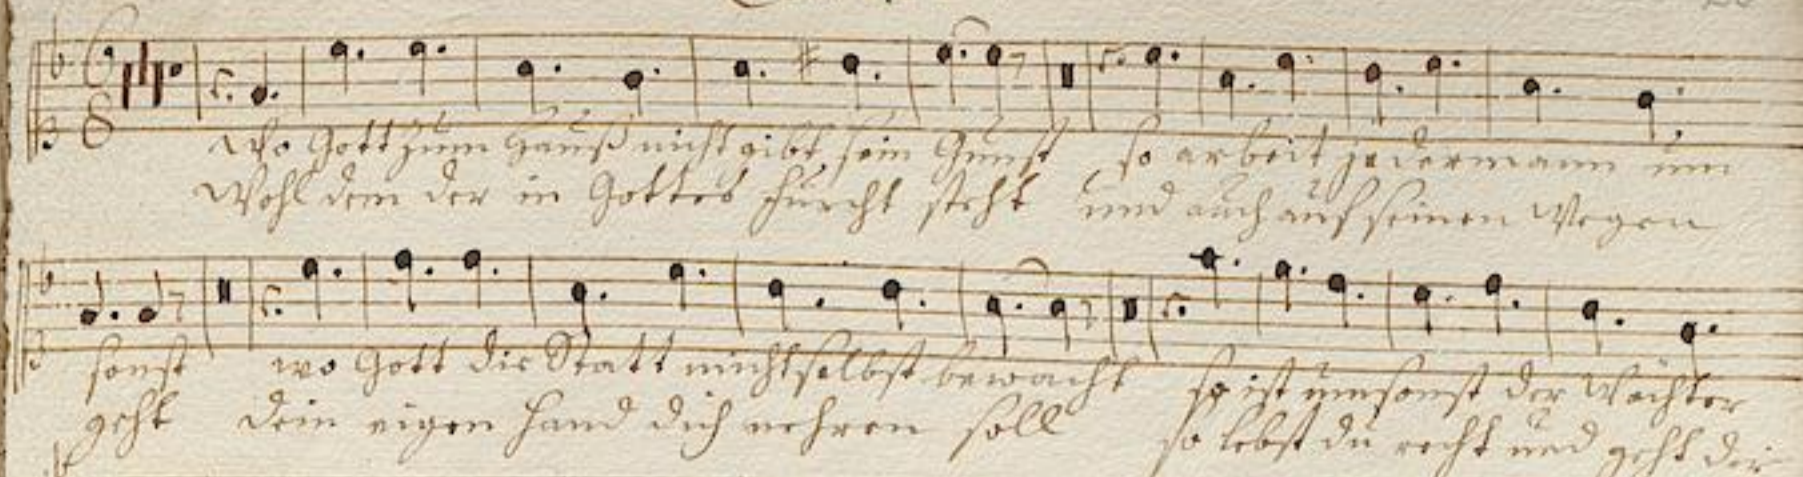 Wo Gott zum Hauß nicht gibt sein Gunst so arbeit jederman um
Wohl dem der in Gottes furcht steht und auch auf seinen Wegen
sonst wo Gott die Statt nicht selbst bewacht so ist umsonst der Wächter
geht dein eigen Hand dich nehren soll so lebst du recht und geht dir